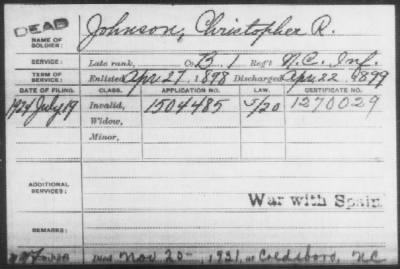 DEAD
NAME OF SOLDIER: Johnson, Christopher R.
SERVICE: Late rank, Co. B, 1 Reg't N.C. Inf.
TERM OF SERVICE: Enlisted Apr 27, 1898 Discharged Apr 22, 1899
DATE OF FILING. CLASS. APPLICATION NO. LAW. CERTIFICATE NO.
July 19 Invalid, 1504485 5/20 1270029
Widow,
Minor,
ADDITIONAL SERVICES: War with Spain
REMARKS:
Died Nov. 20 1921, at Goldsboro, N.C.